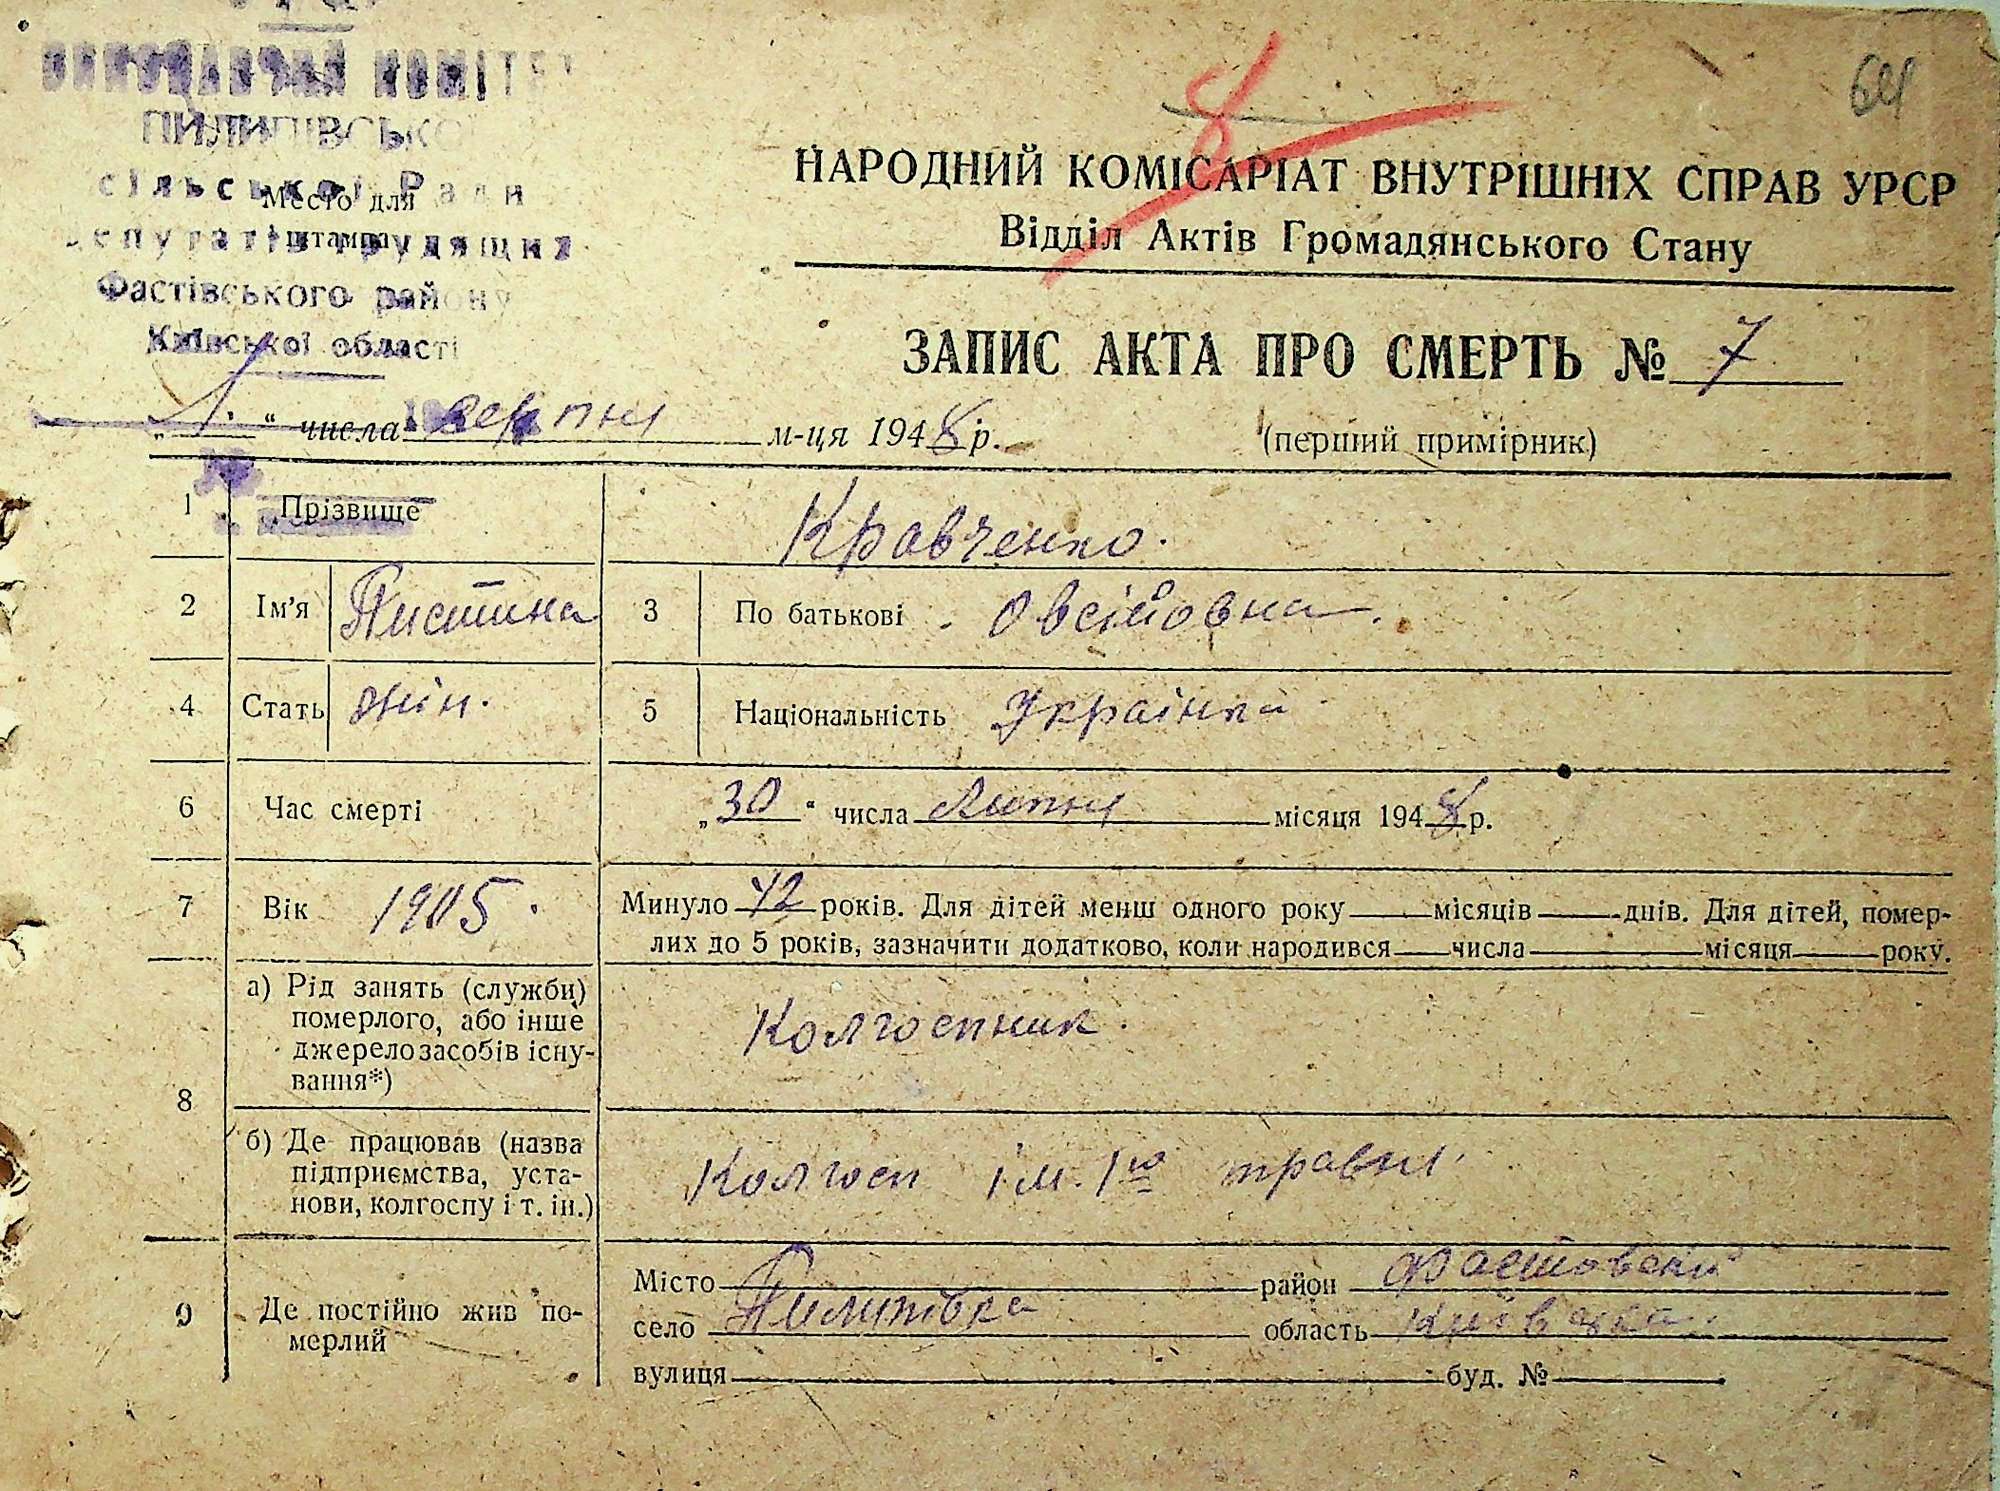 УРСР
ВИКОНАВЧИЙ КОМІТЕТ
ПИЛИПІВСЬКОЇ
сільської Ради
Депутатів трудящих
Фастівського району
Київської області
Место для
штампа
64
8
НАРОДНИЙ КОМІСАРІАТ ВНУТРІШНІХ СПРАВ УРСР
Відділ Актів Громадянського Стану
ЗАПИС АКТА ПРО СМЕРТЬ № 7
„1“ числа серпня м-ця 1948 р.
(перший примірник)
1 Прізвище Кравченко.
2 Ім'я Пистина 3 По батькові Овсійовна.
4 Стать жін. 5 Національність Українка
6 Час смерті „30“ числа липня місяця 1948 р.
7 Вік 1905. Минуло 42 років. Для дітей менш одного року місяців днів. Для дітей, помер-
лих до 5 років, зазначити додатково, коли народився числа місяця року.
8
а) Рід занять (служби)
померлого, або інше
джерело засобів існу-
вання*)
Колгоспник.
б) Де працював (назва
підприємства, уста-
нови, колгоспу і т. ін.)
Колгосп ім. 1го травня
9 Де постійно жив по-
мерлий
Місто район Фастовский
село Пилипівка область Київська.
вулиця буд. №